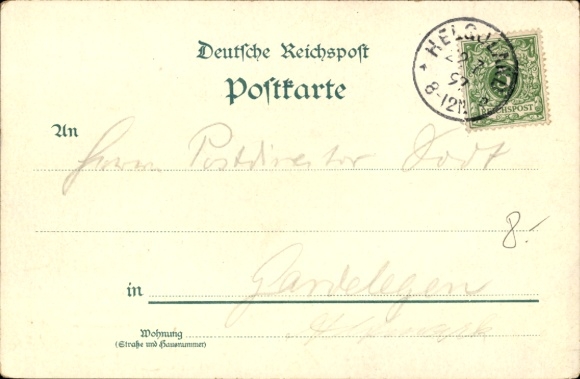 Deutsche Reichspost
Postkarte
HELGOLAND
97
8-12N.
REICHSPOST
An
Herrn Postdirector
8.-
in Gardelegen
Wohnung
(Straße und Hausnummer)